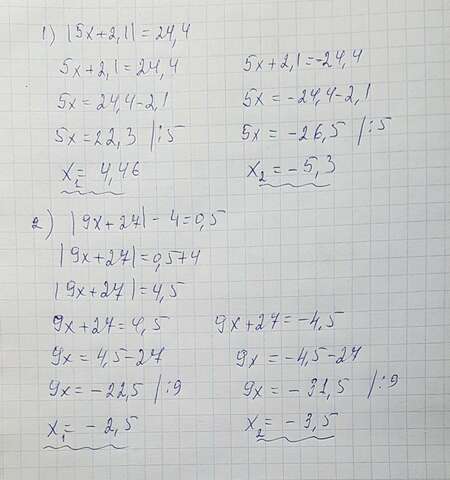 1) |5x+2,1|=24,4
5x+2,1=24,4
5x=24,4-2,1
5x=22,3 /:5
x₁=4,46
5x+2,1=-24,4
5x=-24,4-2,1
5x=-26,5 /:5
x₂=-5,3
2) |9x+27|-4=0,5
|9x+27|=0,5+4
|9x+27|=4,5
9x+27=4,5
9x=4,5-27
9x=-22,5 /:9
x₁=-2,5
9x+27=-4,5
9x=-4,5-27
9x=-31,5 /:9
x₂=-3,5